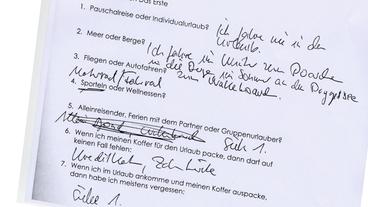 Das Erste
1. Pauschalreise oder Individualurlaub? Ich fahre nie in den
Urlaub.
2. Meer oder Berge? Ich fahre im Winter zum Boarden
in die Berge im Sommer an den
3. Fliegen oder Autofahren? zum Wakeboard.
Motorrad Fahrrad
4. Sporteln oder Wellnessen?
5. Alleinreisender, Ferien mit dem Partner oder Gruppenurlauber?
Siehe 1.
6. Wenn ich meinen Koffer für den Urlaub packe, dann darf auf
keinen Fall fehlen:
Kreditkarte, Zahnbürste
7. Wenn ich im Urlaub ankomme und meinen Koffer auspacke,
dann habe ich meistens vergessen:
Siehe 1.